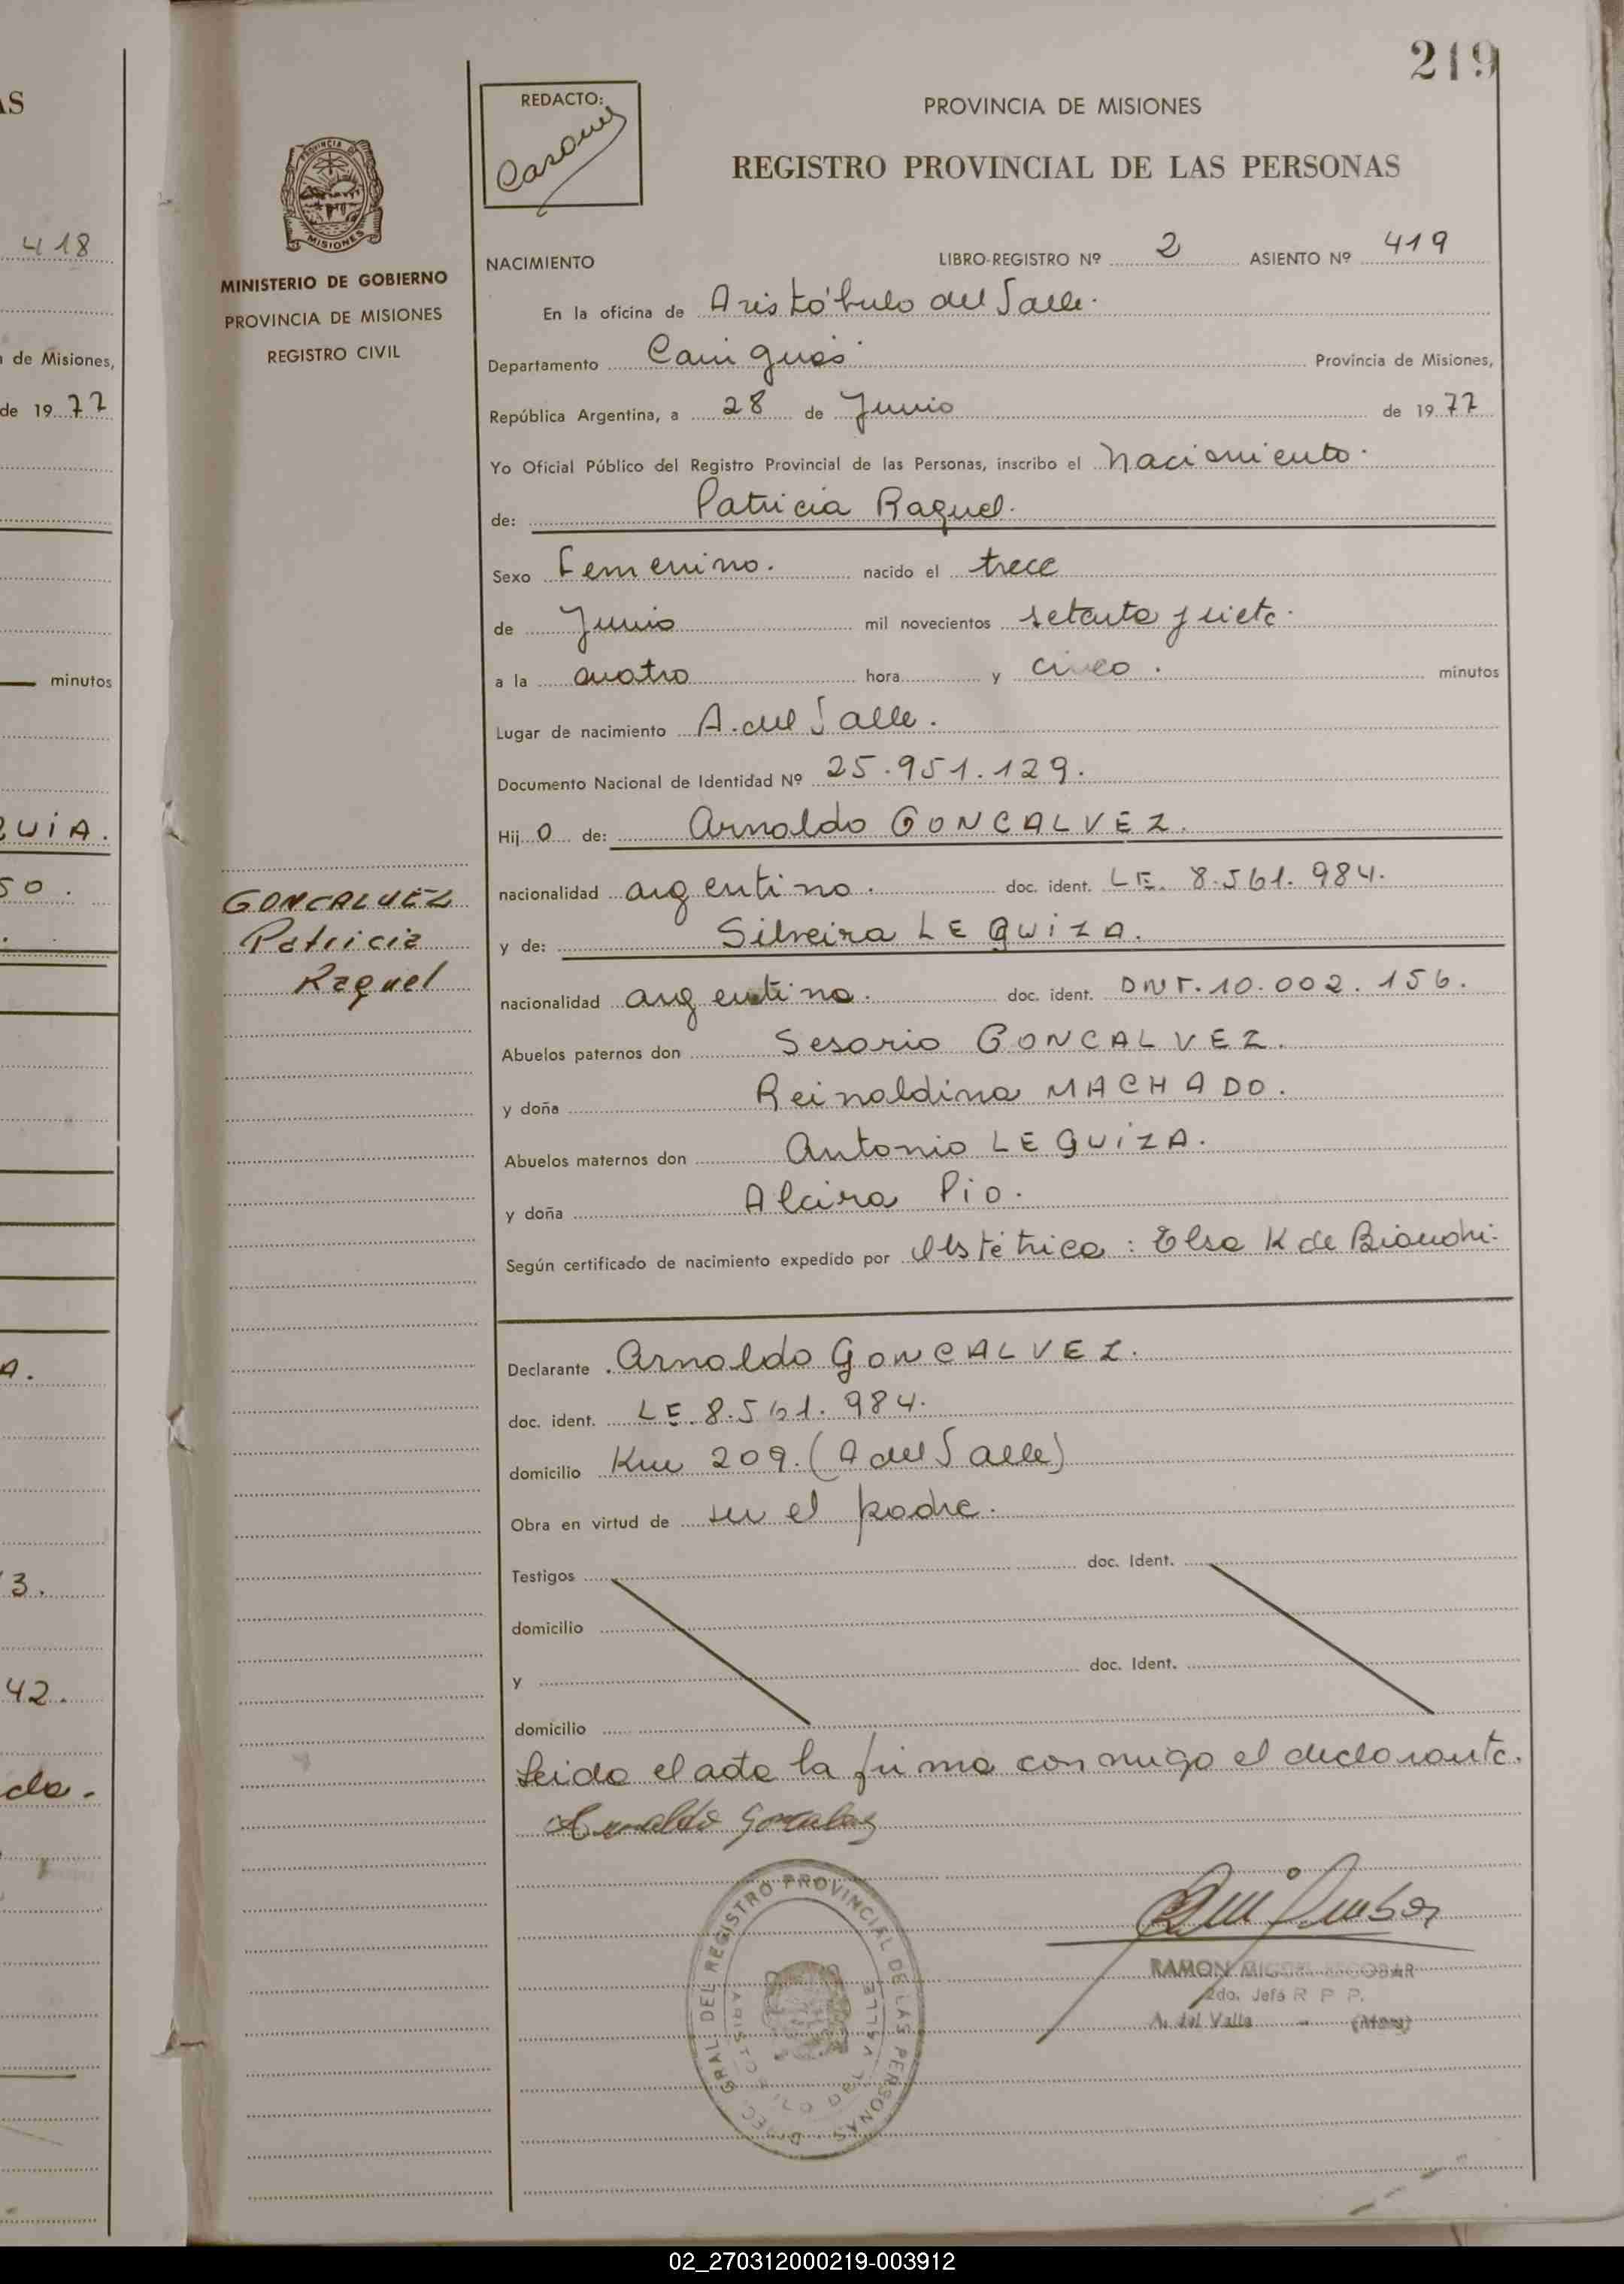 219
AS
418
de Misiones,
de 1977
minutos
QUIA.
50.
A.
3.
42.
REDACTO:
PROVINCIA DE MISIONES
REGISTRO PROVINCIAL DE LAS PERSONAS
PROVINCIA DE
MISIONES
MINISTERIO DE GOBIERNO
PROVINCIA DE MISIONES
REGISTRO CIVIL
GONCALVEZ
Patricia
Raquel
NACIMIENTO LIBRO-REGISTRO Nº 2 ASIENTO Nº 419
En la oficina de Aristóbulo del Valle.
Departamento Cainguás Provincia de Misiones,
República Argentina, a 28 de Junio de 1977
Yo Oficial Público del Registro Provincial de las Personas, inscribo el Nacimiento.
de: Patricia Raquel.
Sexo Femenino. nacido el trece
de Junio mil novecientos setenta y siete.
a la cuatro hora y cinco. minutos
Lugar de nacimiento A. del Valle.
Documento Nacional de Identidad Nº 25.951.129.
Hijo de: Arnoldo GONCALVEZ.
nacionalidad argentino. doc. ident. LE. 8.561.984.
y de: Silveira LEGUIZA.
nacionalidad argentina. doc. ident. DNI. 10.002.156.
Abuelos paternos don Sesario GONCALVEZ.
y doña Reinoldina MACHADO.
Abuelos maternos don Antonio LEGUIZA.
y doña Alcira Pio.
Según certificado de nacimiento expedido por Obstétrica: Elsa K de Bianchi.
Declarante Arnoldo GONCALVEZ.
doc. ident. LE. 8.561.984.
domicilio Km 209. (A del Valle)
Obra en virtud de ser el padre.
Testigos doc. Ident.
domicilio
y doc. Ident.
domicilio
Leida el acta la firma conmigo el declarante.
Arnoldo Goncalvez
DIREC. GRAL. DEL REGISTRO PROVINCIAL DE LAS PERSONAS
ARISTOBULO DEL VALLE
RAMON MIGUEL ESCOBAR
2do. Jefe R P P.
A. del Valle - (Mnes)
02_270312000219-003912